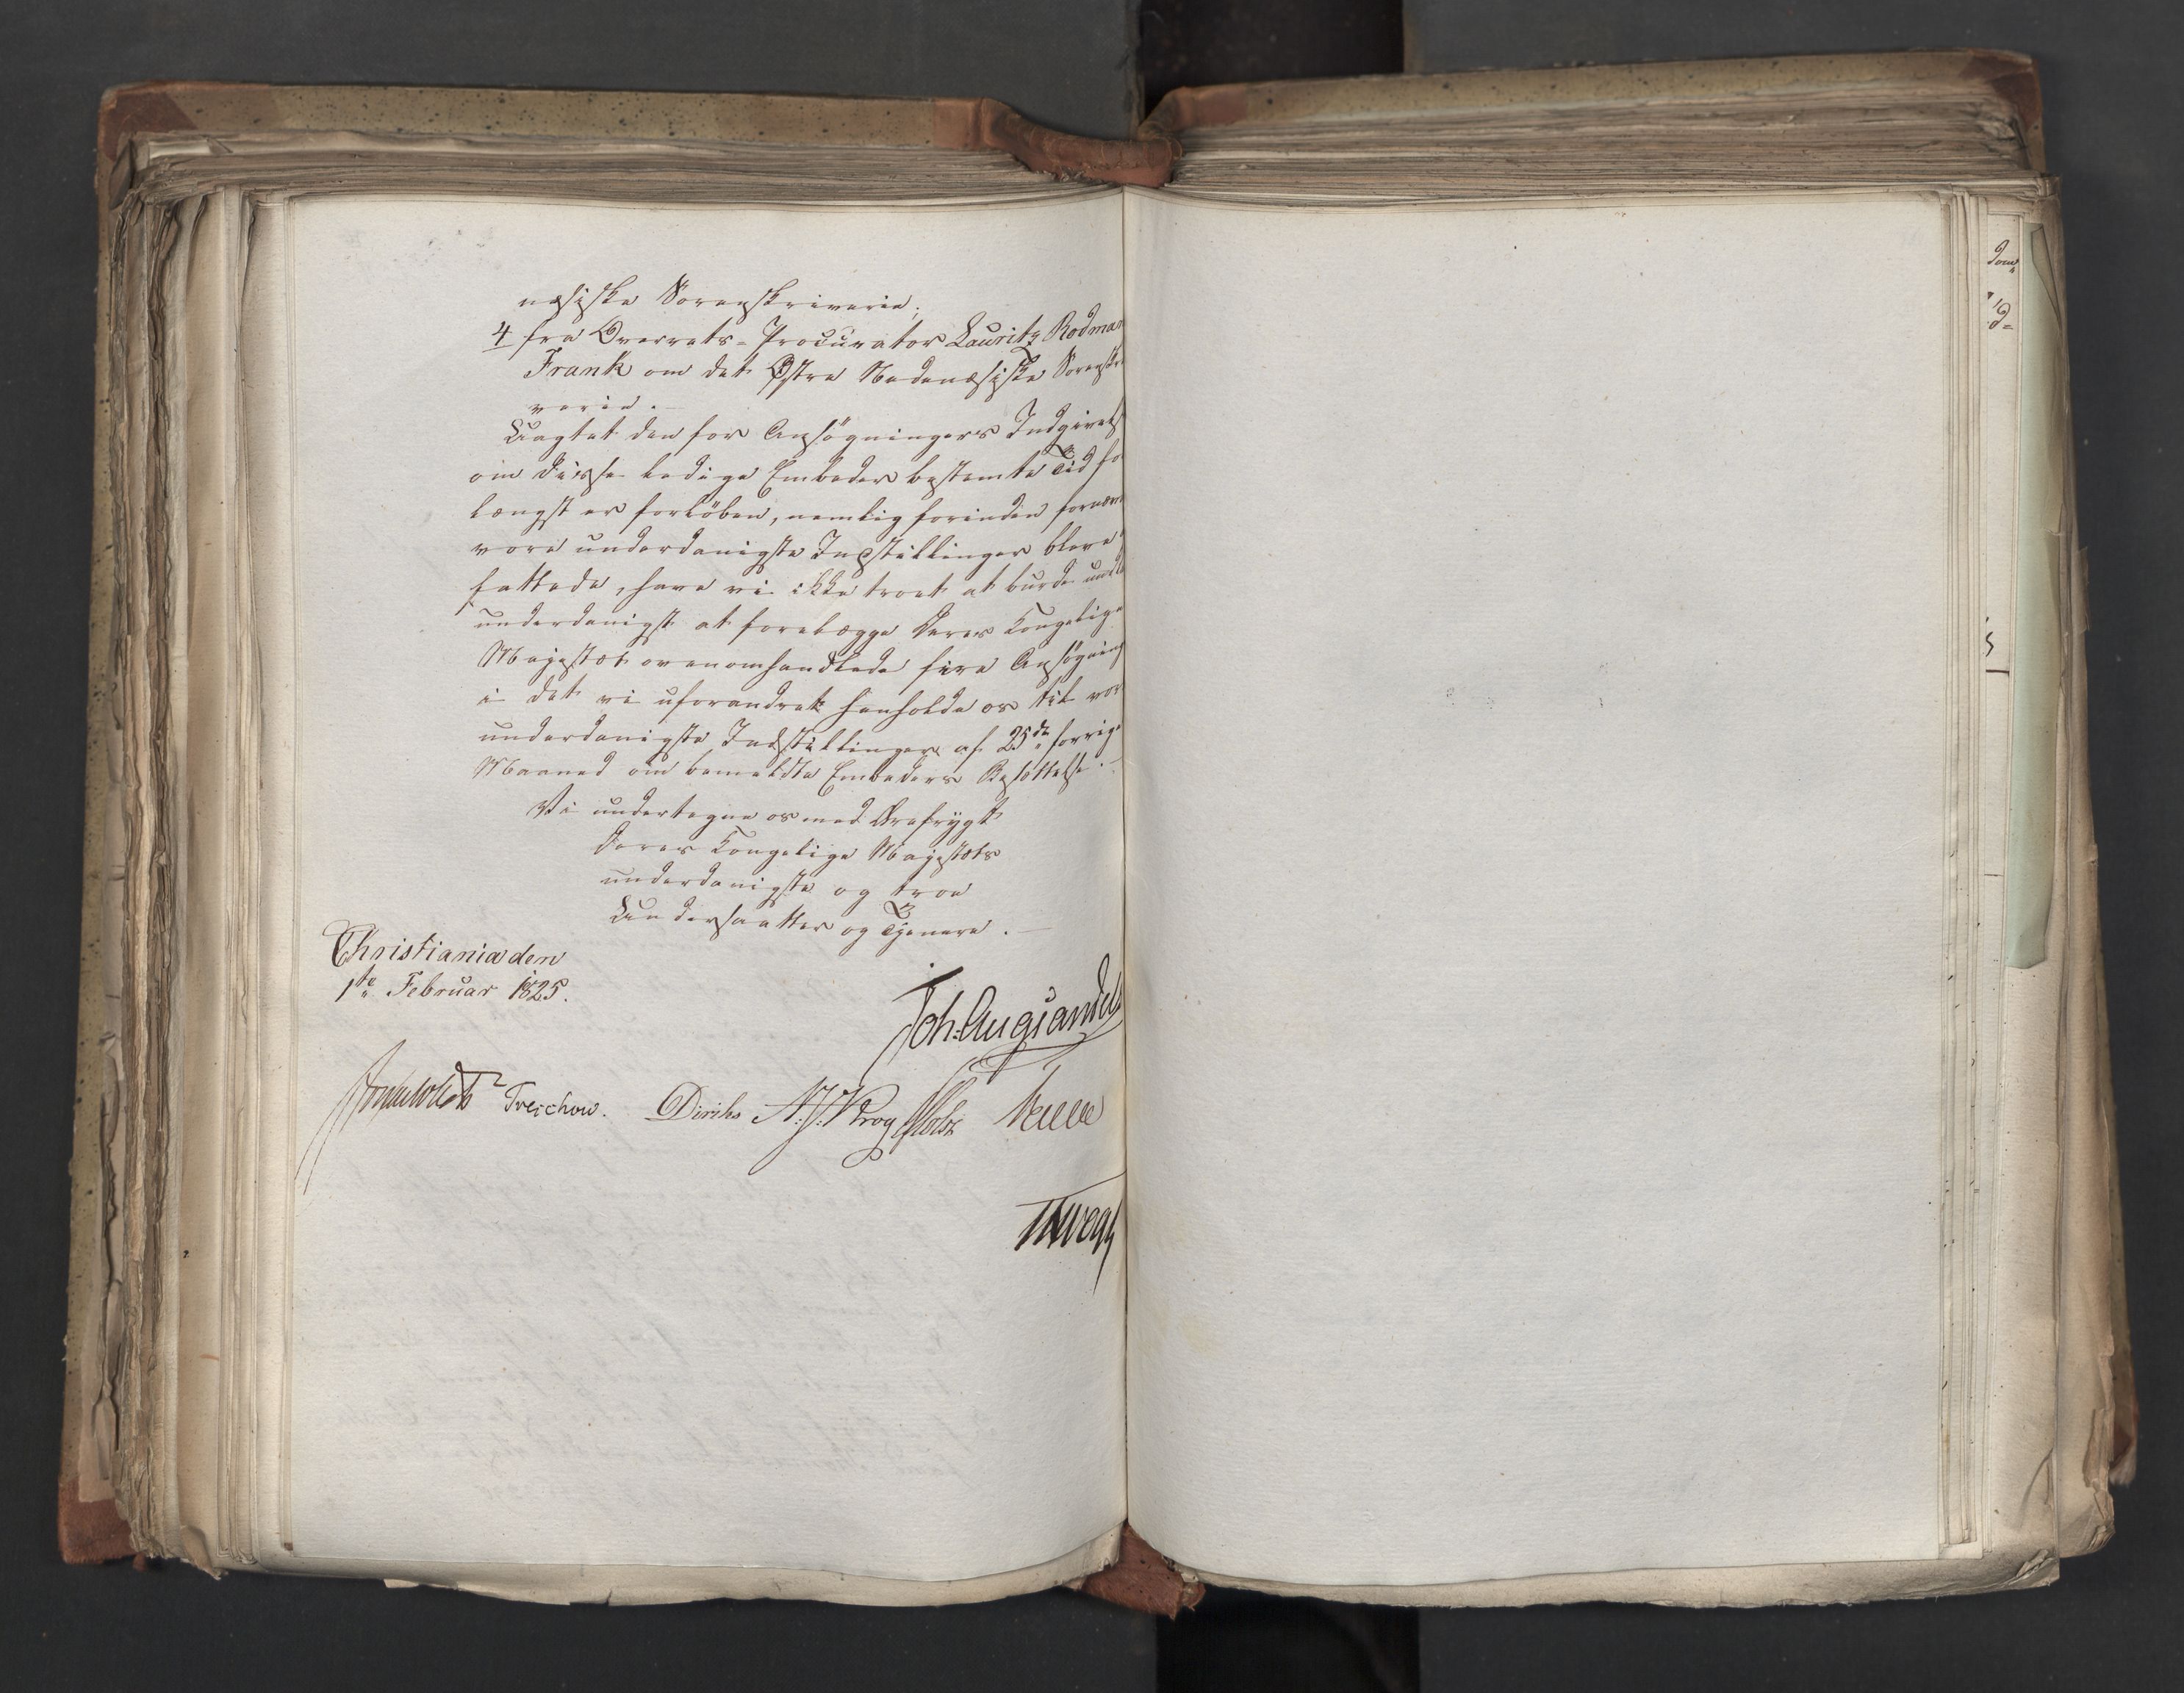 næsiske Sorenskriverie;
4 fra Overrets-Procurator Lauritz Rodman
Frank om det Østre Nedenæsiske Sorenskri
verie.
Uagtet den for Ansøgningers Indgivels
om disse ledige Embeder bestemte Tid for
længst er forløben, nemlig forinden fornævn
vore underdanigste Indstillinger bleve
fattede, have vi ikke troet at burde unde
underdanigst at forelægge Deres Kongelige
Majestæt ovenomhandlede fire Ansøgning
i det vi uforandret henholde os til vor
underdanigste Indstillinger af 25de forrige
Maaned om bemeldte Embeders Besættelse.
Vi undertegne os med Ærefrygt
Deres Kongelige Majestæts
underdanigste og troe
Undersaatter og Tjenere.
Christiania den
1te Februar 1825.
Joh: Aug: Sandels
Sommerhielm Treschow. Diriks A. J: Krog Holst
Vogt
Dom